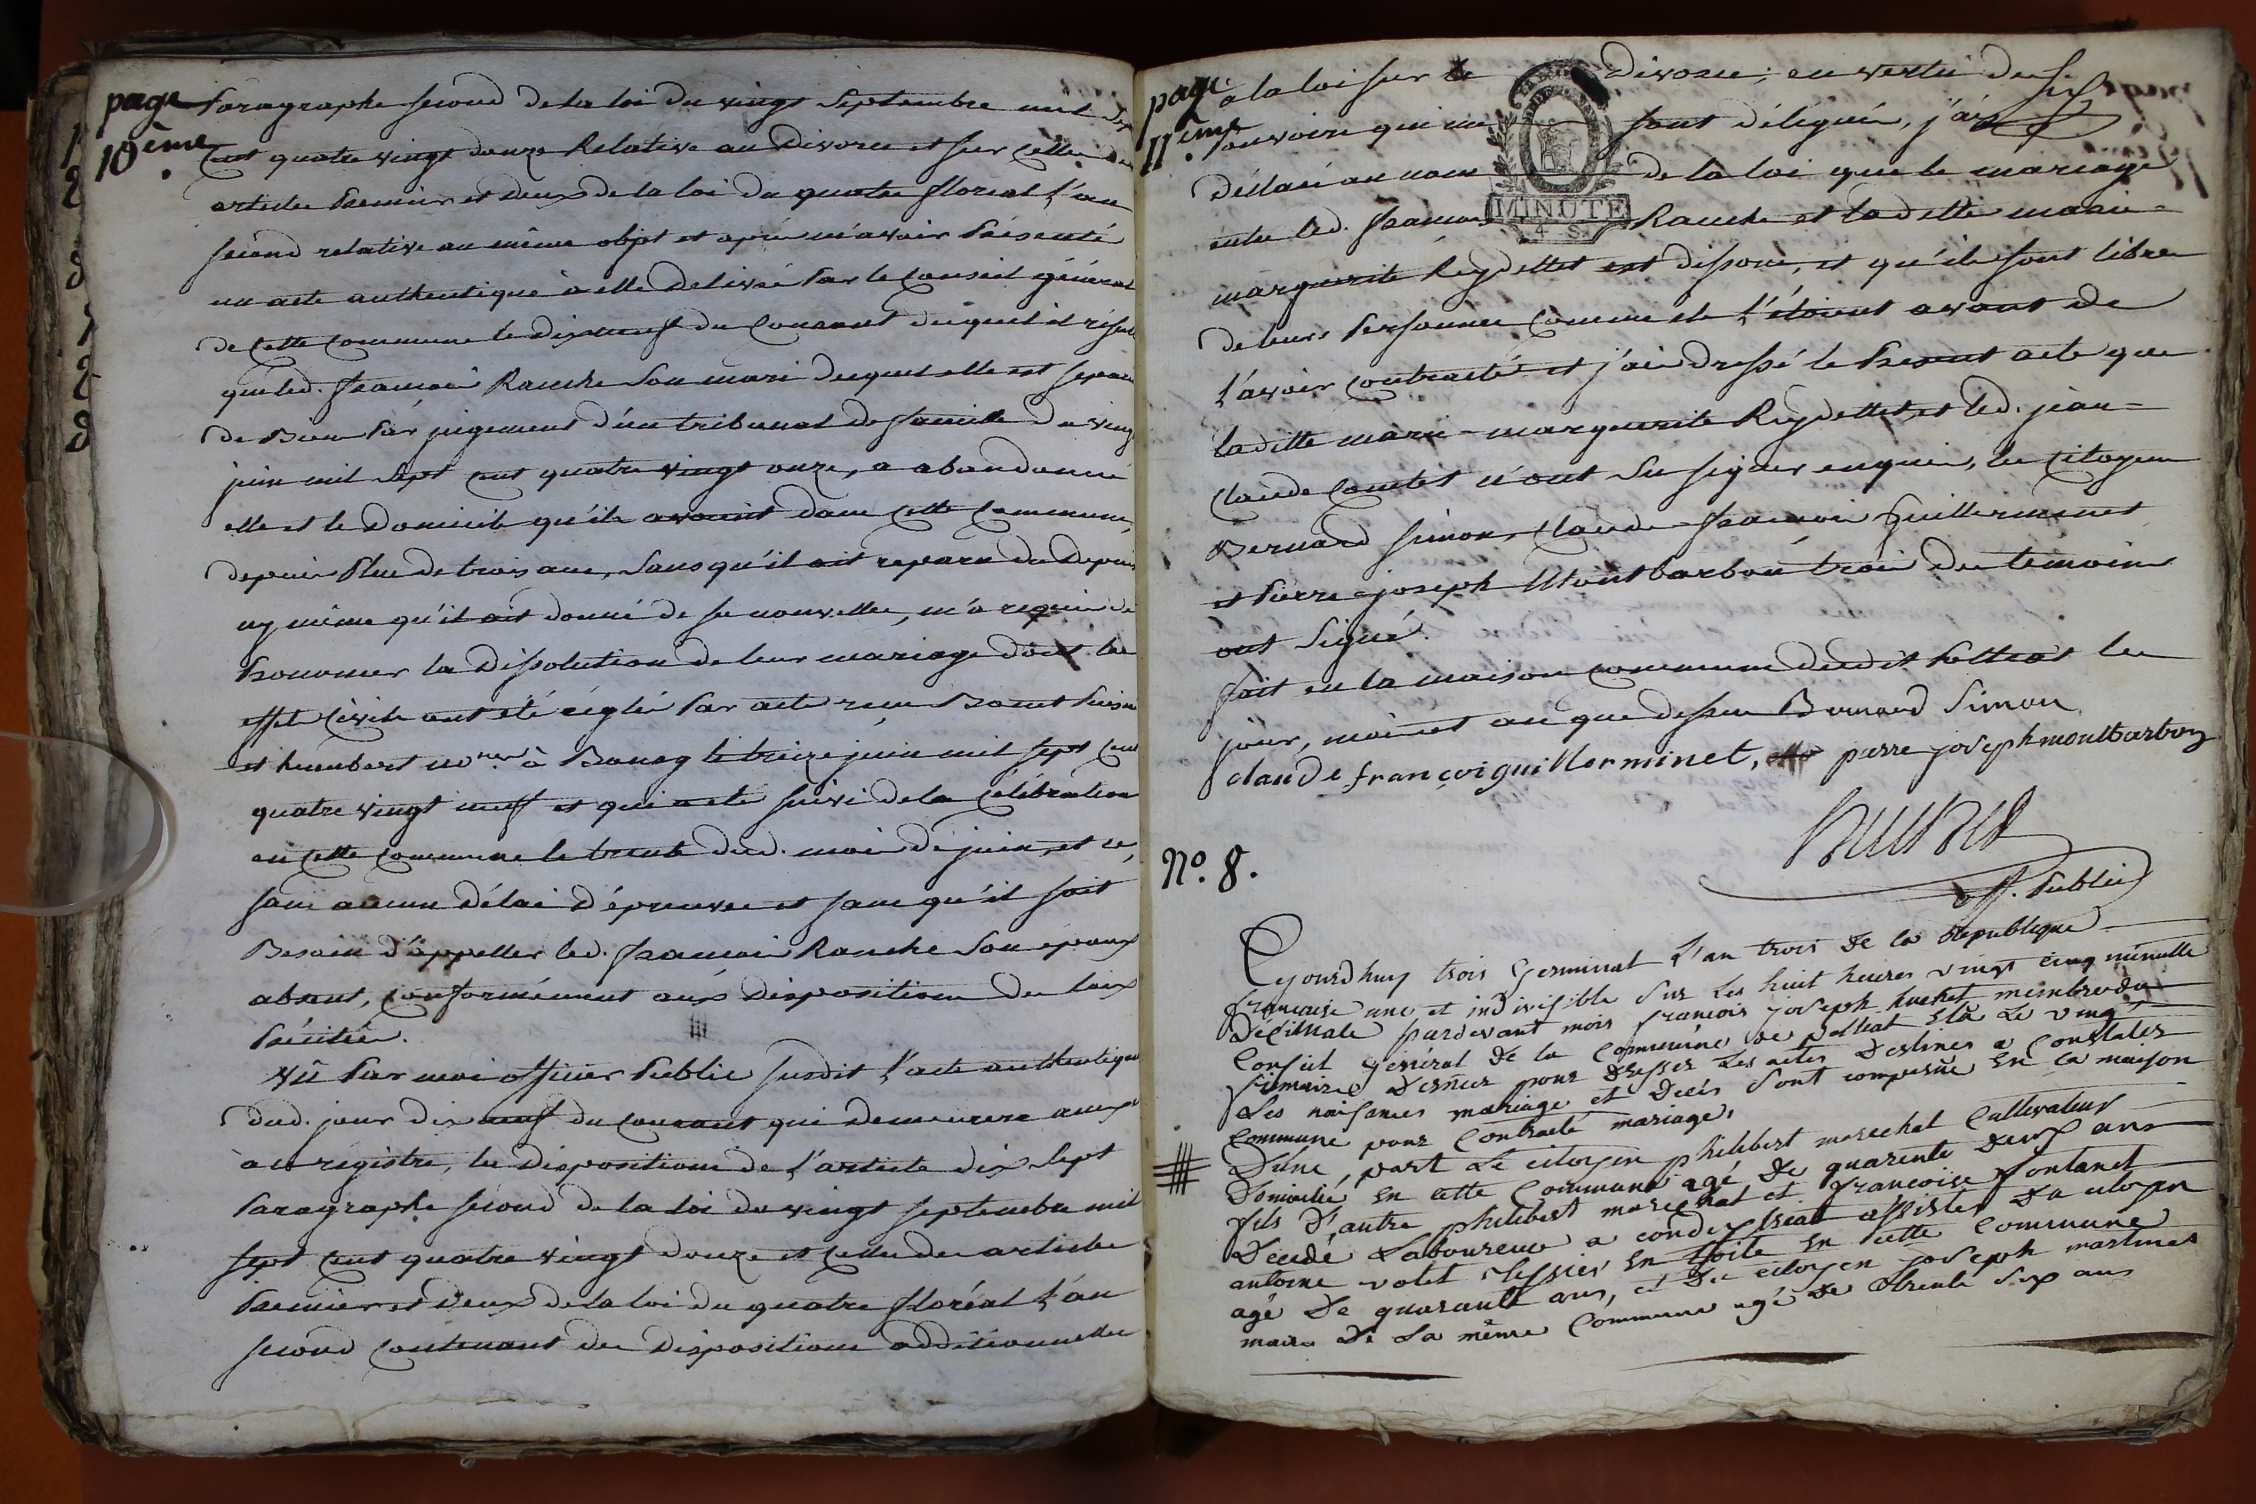 page
10ème.
Paragraphe second de la loi du vingt Septembre mil sept
Cent quatre vingt douze Relative au Divorce et sur celle des
articles Premier et deux de la loi du quatre floreal l'an
second relative au même objet et après m'avoir Présenté
un acte authentique à elle delivré Par le Conseil général
de Cette Commune le dixneuf du Courant duquel il résulte
que led. françois Ranche Son mari duquel elle est separée
de Bien Par jugement d'un tribunal de famille du vingt
juin mil Sept cent quatre vingt onze, a abandonné
elle et le Domicile qu'ils avoient dans Cette Commune,
depuis Plus de trois ans, Sans qu'il ait reparu du Depuis
ny même qu'il ait donné de ses nouvelles, m'a requis de
Prononcer la Dissolution de leur mariage dont les
effets Civils ont été réglés Par acte reçu
et humbert nores à Bourg le treize juin mil sept Cent
quatre vingt neuf et qui a été suivi de la Célébration
en Cette Commune le trente dud. mois de juin, et ce,
sans aucun Délai d'épreuves et sans qu'il soit
Besoin d'appeller led. françois Ranche Son époux
absent, Conformément aux dispositions des loix
Précitées.
Vû Par moi officier Public susdit l'acte authentique
dud. jour dix neuf du Courant qui demeurera annexé
à ce régistre, les dispositions de l'article dix sept
Paragraphe second de la loi du vingt septembre mil
sept Cent quatre vingt douze et celles des articles
Premier et deux de la loi du quatre floréal l'an
second Contenant des Dispositions additionnelles
page
11ème.
à la loi sur le divorce; en vertu des
Pouvoirs qui me sont délégués, j'ai
déclaré au nom de la loi que le mariage
entre led. françois Ranche et ladite marie-
marguerite Reydellet est dissous, et qu'ils sont libres
de leurs Personnes Comme ils l'étoient avant de
l'avoir Contracté et j'ai dressé le Present acte que
ladite marie-marguerite Reydellet, et led. jean-
Claude Comtet n'ont Su signer enquis, les Citoyens
Bernard Simon, Claude-françois Guillerminet
et Pierre-joseph Montbarbon trois des temoins
ont Signé.
fait en la maison Commune dudit Polliat les
jour, mois et an que dessus Bernard Simon
claude françois guillerminet, pierre joseph montbarbon
huchet
off. Public
MINUTE
4 S.
No. 8.
Cejourdhuy trois Germinal L'an trois de la Republique
française une et indivisible sur les huit heures vingt cinq minutte
Decimale pardevant mois françois joseph huchet membre du
Conseil General de la Commune de polliat élû Le vingt
frimaire Dernier pour Dresser Les actes Destinés a Constater
Les naissances mariage et Decès sont comparue En la maison
Commune pour Contracté mariage,
D'une part Le citoyen philibert marechal Cultivateur
Domicilié en cette Commune agé de quarente Deux ans
fils D'autre philibert marechal et françoise fontanel
Decedé Laboureur a assisté Du citoyen
antoine volet Tissier En toile En cette Commune
agé De quarante ans, et Du citoyen joseph martinet
maire De La même Commune agé de Trente six ans